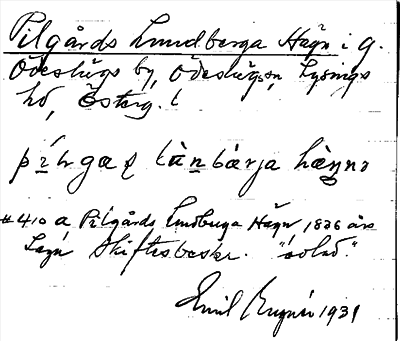 Pilgårds Lundberga Hägn i g.
Ödeshögs by, Ödeshögs sn, Lysings
hd, Österg. l
lùnbærja hæŋnə
#410 a Pilgårds Lundberga Hägn 1836 års
Laga Skiftesbeskr. "åbod."
Emil 1931